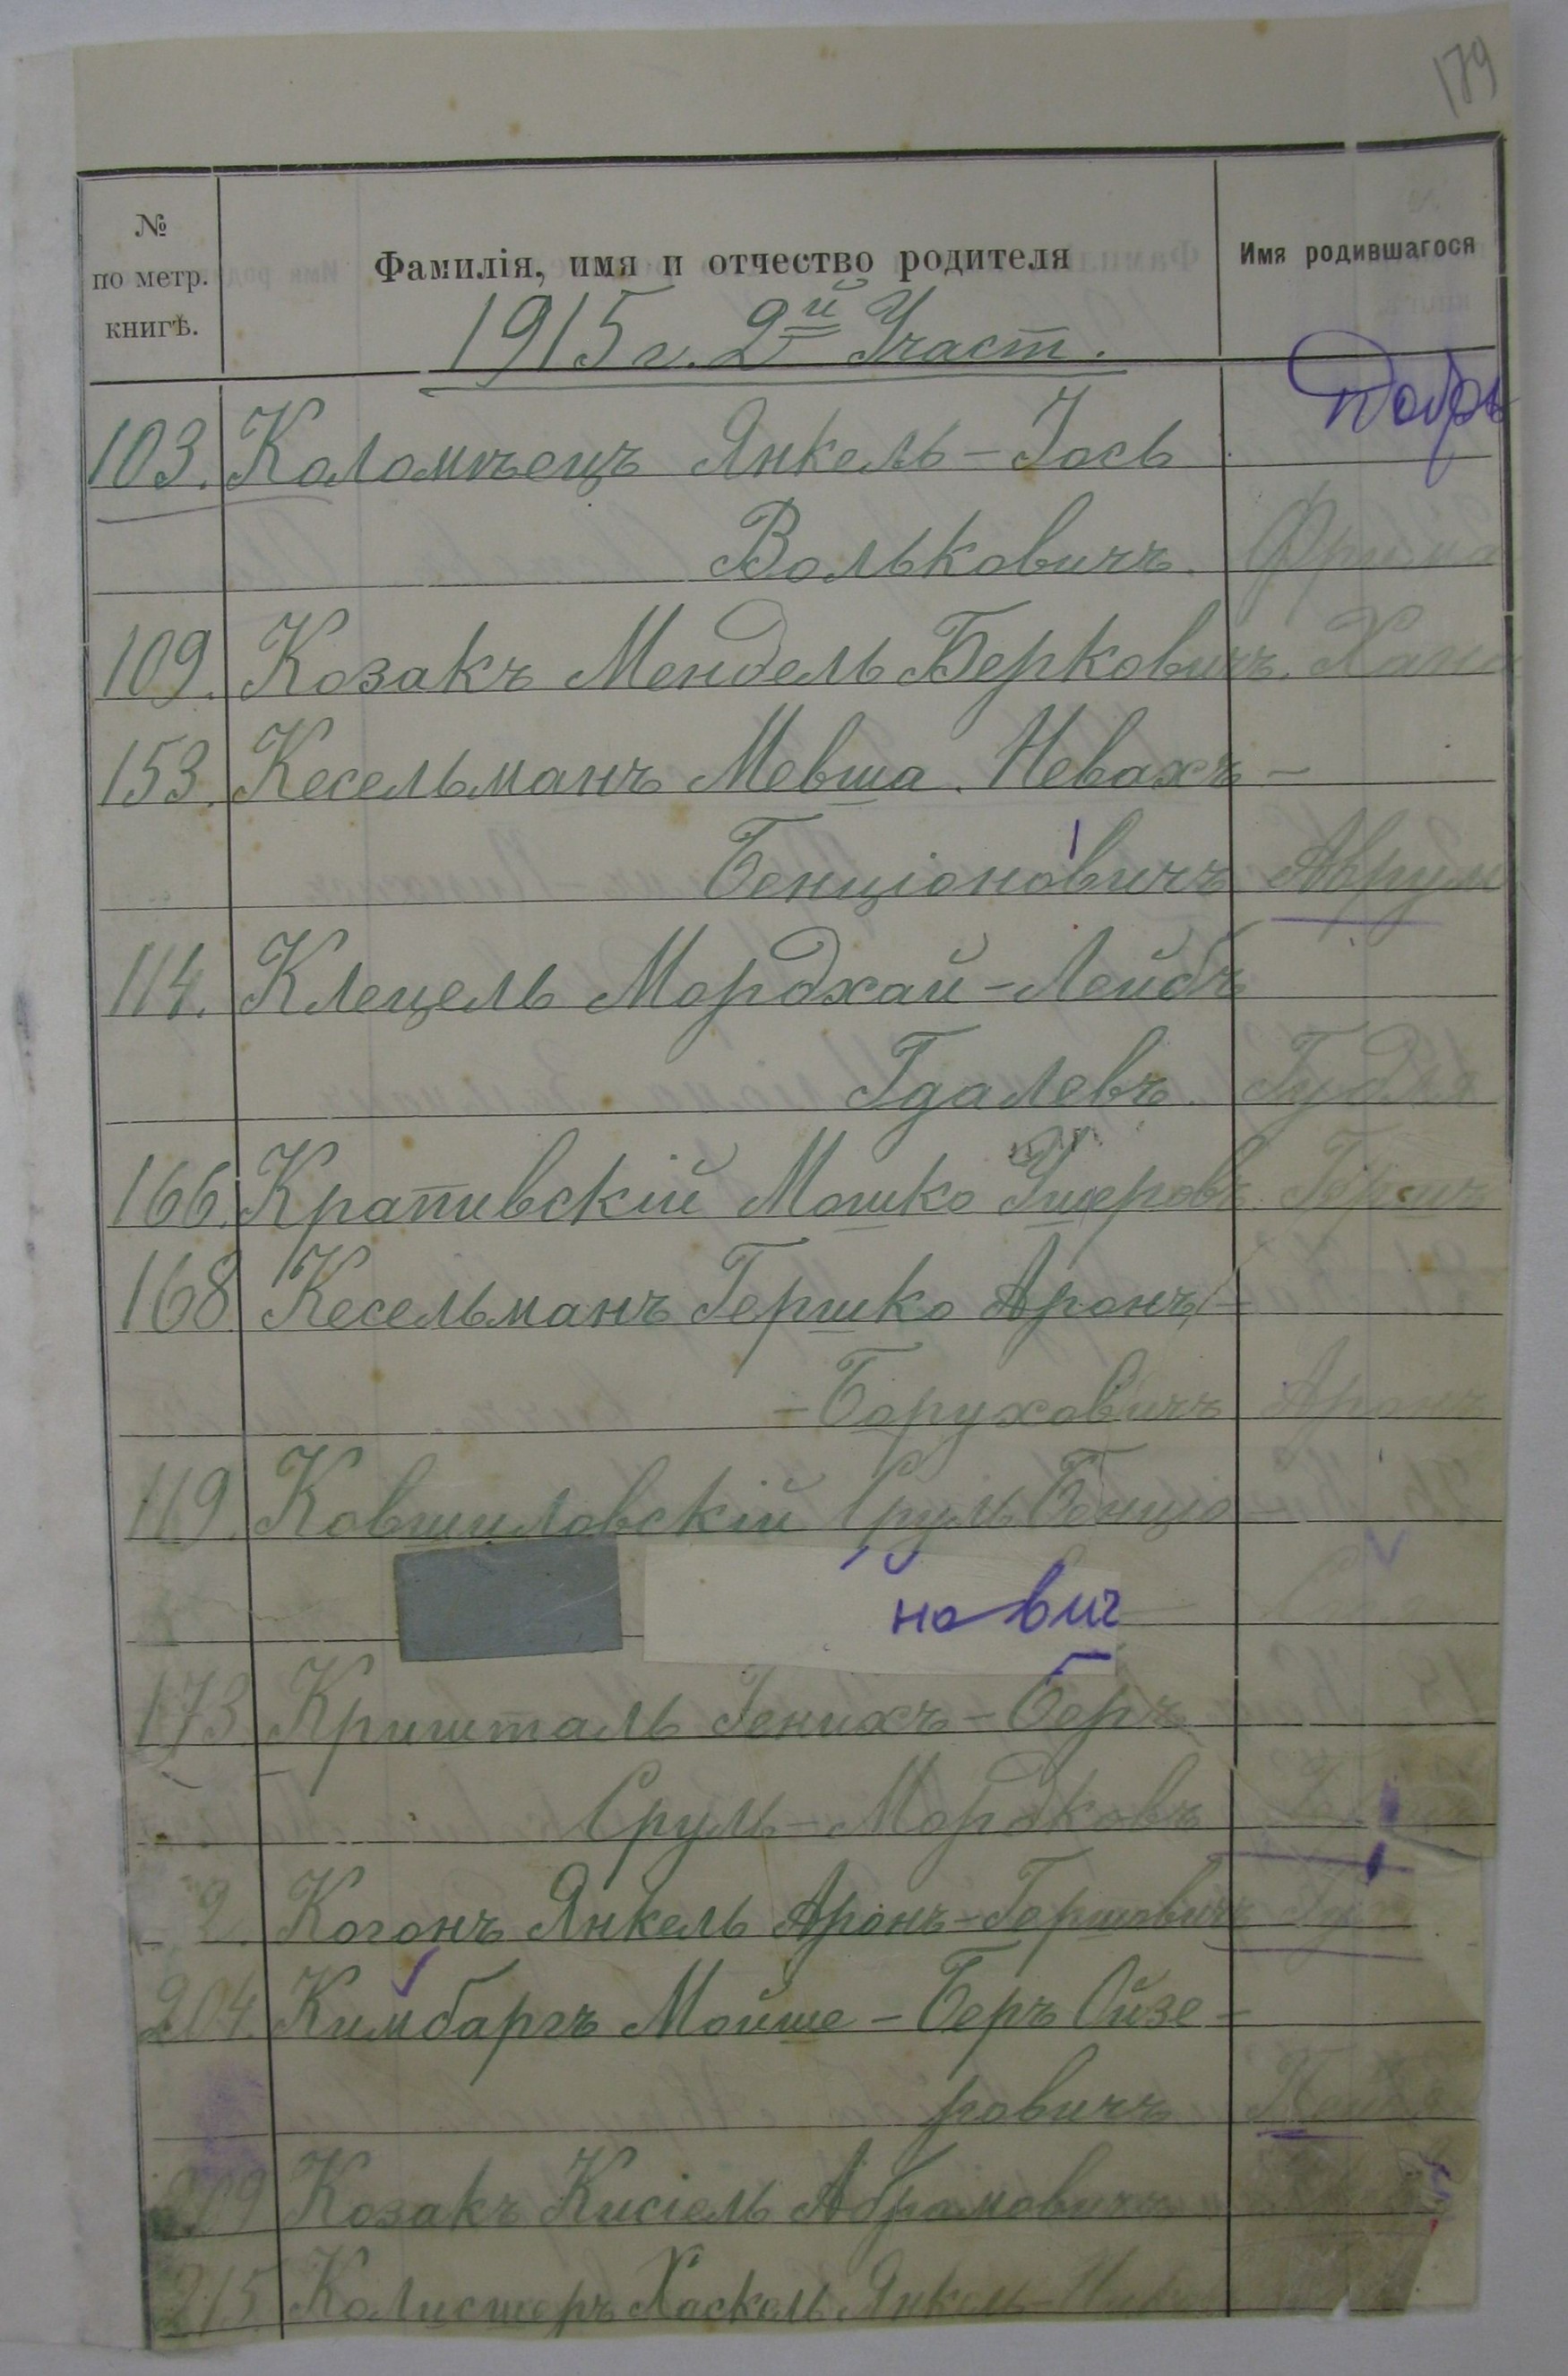 179
№ по метр. книгѣ.
Фамилія, имя и отчество родителя
Имя родившагося
1915 г. 2й Участ.
103. Коломѣецъ Янкель-Іось
Вольковичъ. Фрима
109. Козакъ Мендель Берковичъ. Хана
153. Кесельманъ Мевша. Невахъ-
Бенціоновичъ Аврум
114. Клецель Мордхай-Лейбъ
Гдалевъ. Гудля
166. Крапивскій Мошко Ушеровъ. Гершъ
168 Кесельманъ Гершко Аронъ-
-Боруховичъ Аронъ
119. Ковшиловскій Сруль Бенціо-
нович
173 Кришталь Генихъ-Беръ
Сруль-Мордковъ
2. Когонъ Янкель Аронъ-Гершовичъ
204. Кимбаргъ Мойше-Беръ Ойзе-
ровичъ
209 Козакъ Кисіель Абрамовичъ
215. Хаскель Янкель